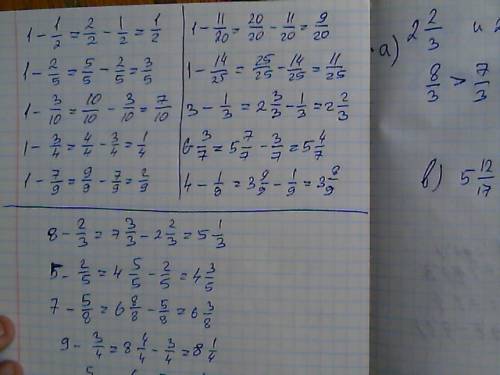 1 - 1/2 = 2/2 - 1/2 = 1/2
1 - 2/5 = 5/5 - 2/5 = 3/5
1 - 3/10 = 10/10 - 3/10 = 7/10
1 - 3/4 = 4/4 - 3/4 = 1/4
1 - 7/9 = 9/9 - 7/9 = 2/9
1 - 11/20 = 20/20 - 11/20 = 9/20
1 - 14/25 = 25/25 - 14/25 = 11/25
3 - 1/3 = 2 3/3 - 1/3 = 2 2/3
6 3/7 = 5 7/7 - 3/7 = 5 4/7
4 - 1/9 = 3 9/9 - 1/9 = 3 8/9
8 - 2/3 = 7 3/3 - 2 2/3 = 5 1/3
5 - 2/5 = 4 5/5 - 2/5 = 4 3/5
7 - 5/8 = 6 8/8 - 5/8 = 6 3/8
9 - 3/4 = 8 4/4 - 3/4 = 8 1/4
а) 2 2/3 и 2
8/3 > 7/3
в) 5 12/17